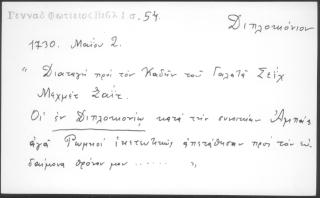 Γενναδ Φωτιειος Βιβλ 1 σ. 54.
Διπλοκιόνιον
1730. Μαΐου 2.
"Διαταγὴ πρὸς τὸν Καδῆν τοῦ Γαλατᾶ Σεΐχ
Μεχμὲτ Σαΐτ.
Οἱ ἐν Διπλοκιονίῳ κατὰ τὴν συνοικίαν Ἀμπὰς
ἀγᾶ Ρωμηοὶ ἱκετευτικῶς ἀπετάθησαν πρὸς τὸν εὐ-
δαίμονα θρόνον μου ...... "